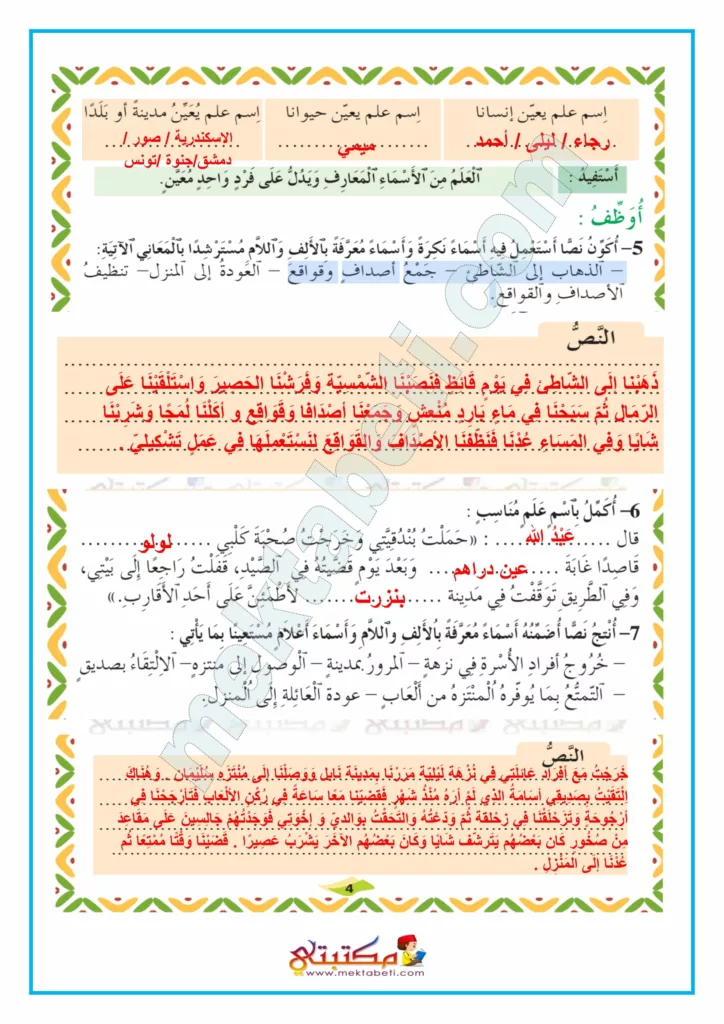 اِسم علم يعيّن إنسانا
اِسم علم يعيّن حيوانا
اِسم علم يُعَيِّنُ مدينةً أو بَلَدًا
رجاء / ليلى / أحمد
ميمي
الاسكندرية / صور /
دمشق/جنوة /تونس
أَسْتَفِيدُ :
اَلْعَلَمُ مِنَ الْأَسْمَاءِ الْمَعَارِفِ وَيَدُلُّ عَلَى فَرْدٍ وَاحِدٍ مُعَيَّنٍ.
أُوَظِّفُ :
5- أُكَوِّنُ نَصًّا أَسْتَعْمِلُ فِيهِ أَسْمَاءً نَكِرَةً وَأَسْمَاءً مُعَرَّفَةً بِالْأَلِفِ وَاللاَّمِ مُسْتَرْشِدًا بِالْمَعَانِي الآتِيَةِ:
- الذهاب إلى الشّاطئ - جَمْعُ أصدافٍ وقواقعَ - العَودةُ إلى المنزل- تنظيفُ
الأصدافِ والقَواقِعِ.
النَّصُّ
ذَهَبْنا إلَى الشّاطئِ فِي يَوْمٍ قَائظٍ فَنَصَبْنَا الشّمْسِيّة وَفَرشْنَا الحَصيرَ وَاسْتَلْقَيْنَا عَلَى
الرّمَالِ ثُمّ سَبَحْنَا في مَاءٍ بَاردٍ مُنْعشٍ وَجَمَعْنا أصْدَافا وَقَوَاقع و أكَلْنَا لُمَجًا وَشَرِبْنَا
شَايًا وَفِي المَسَاءِ عُدْنَا فَنَظّفنَا الأصْدَافَ وَالقَوَاقِعَ لِنَسْتَعْمِلَهَا فِي عَمَلٍ تَشْكِيلِيّ .
6- أُكَمِّلُ بِاسْمِ عَلَمٍ مُنَاسِبٍ :
قال ...... عَبْدُ الله ...... : «حَمَلْتُ بُنْدُقِيَّتِي وَخَرَجْتُ صُحْبَةَ كَلْبِي ...... لولو ......
قَاصِدًا غَابَةَ ...... عين دراهم ...... وَبَعْدَ يَوْمٍ قَضَيْتُهُ فِي الصَّيْدِ، قَفَلْتُ رَاجِعًا إِلَى بَيْتِي،
وَفِي الطَّرِيقِ تَوَقَّفْتُ فِي مَدينة ...... بنزرت ...... لأَطْمَئِنَّ عَلَى أَحَدِ الأَقَارِبِ.»
7- أُنْتِجُ نَصًّا أُضَمِّنُهُ أَسْمَاءً مُعَرَّفَةً بِالأَلِفِ وَاللاَّمِ وَأَسْمَاءَ أَعْلَامٍ مُسْتَعِينًا بِمَا يَأْتِي :
- خُرُوجُ أفرادِ الأُسْرةِ فِي نزهةٍ - المرورُ بمدينةٍ - الْوصولُ إلى منتزهٍ- الاِلْتِقَاءُ بصديقٍ
- التّمتّعُ بِمَا يُوفّره الْمُنْتَزه من أَلْعَابٍ - عودة العَائِلَةِ إلَى المْنزل.
النَّصُّ
خَرَجْتُ مَعَ أفْرَادِ عَائلَتِي فِي نُزْهَةٍ لَيْلِيّةٍ مَرَرْنَا بِمَدِينَةِ نَابِل وَوَصَلْنَا إلَى مُنْتَزَه سُلَيْمَان . وَهُنَاكَ
الْتَقَيْتُ بِصَدِيقِي أسَامَةَ الذي لَمْ أرَهُ مُنْذُ شَهْرٍ فَقَضَيْنَا مَعًا سَاعَةً فِي رُكْنِ الألْعَابِ فَتَأرْجَحْنَا فِي
أرْجُوحَةٍ وَتَزَحْلَقْنَا فِي زحْلقة ثُمّ وَدّعْتُهُ وَالتَحَقْتُ بوَالديّ وَ إخْوَتِي فَوَجَدْتُهُمْ جَالِسِينَ عَلَى مَقَاعِدَ
مِنْ صُخُورٍ كَانَ بَعْضُهُمْ يَتَرشّف شَايًا وَكَانَ بَعْضُهُم الآخَر يَشْرَبُ عَصِيرًا . قَضَيْنَا وَقْتًا مُمْتِعًا ثُم
عُدْنَا إلَى المَنْزِلِ .
4
مكتبتي
www.mektabeti.com
mektabeti.com